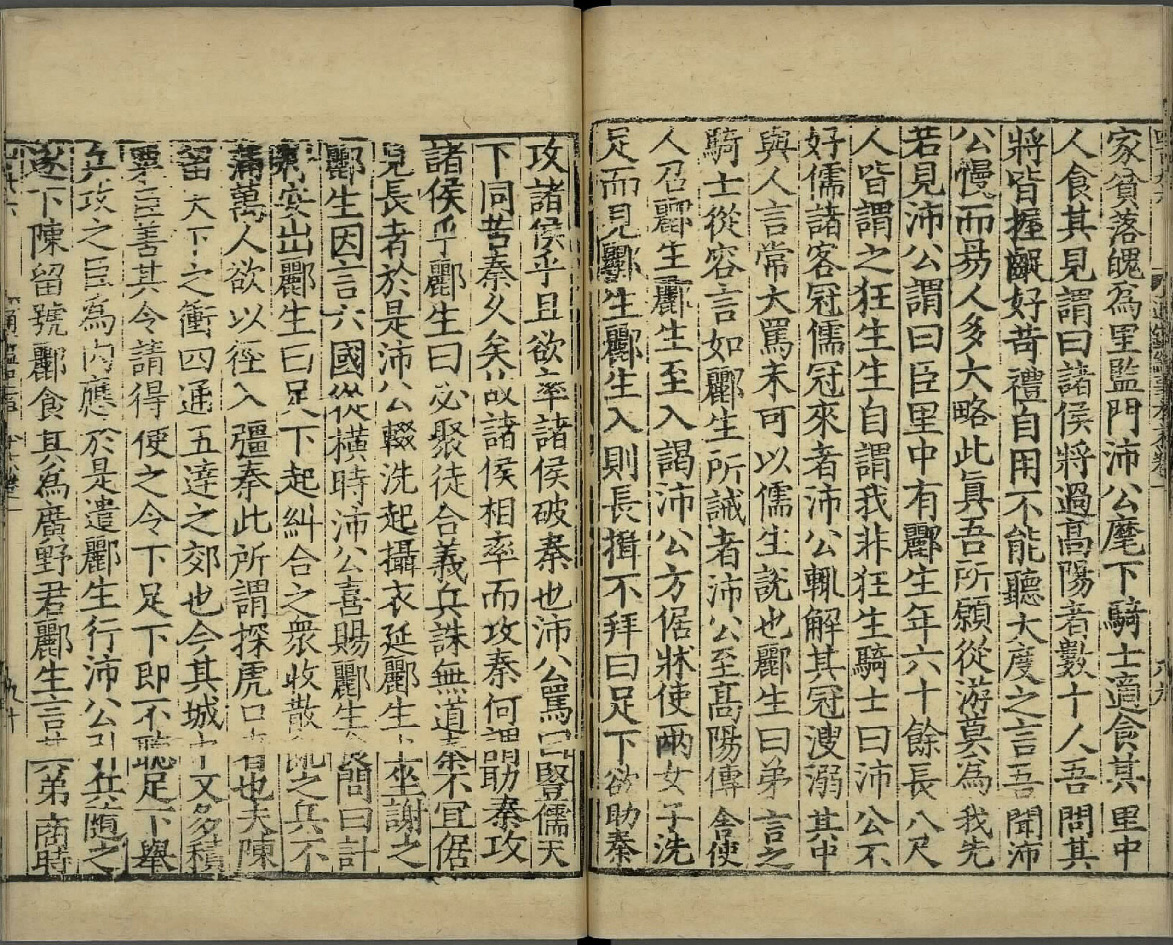 家貧落魄為里監門沛公麾下騎士適食其里中
人食其見謂曰諸侯將過高陽者數十人吾問其
將皆握齱好苛禮自用不能聽大度之言吾聞沛
公慢而易人多大略此真吾所願從游莫為我先
若見沛公謂曰臣里中有酈生年六十餘長八尺
人皆謂之狂生生自謂我非狂生騎士曰沛公不
好儒諸客冠儒冠來者沛公輒解其冠溲溺其中
與人言常大罵未可以儒生說也酈生曰弟言之
騎士從容言如酈生所誡者沛公至高陽傳舍使
人召酈生酈生至入謁沛公方倨牀使兩女子洗
足而見酈生酈生入則長揖不拜曰足下欲助秦
攻諸侯乎且欲率諸侯破秦也沛公罵曰豎儒天
下同苦秦久矣故諸侯相率而攻秦何謂助秦攻
諸侯乎酈生曰必聚徒合義兵誅無道秦不宜倨
見長者於是沛公輟洗起攝衣延酈生上坐謝之
酈生因言六國從橫時沛公喜賜酈生食問曰計
安出酈生曰足下起糾合之眾收散亂之兵不
滿萬人欲以徑入彊秦此所謂探虎口者也夫陳
留天下之衝四通五達之郊也今其城中又多積
粟臣善其令請得使之令下足下即不聽足下舉
兵攻之臣為內應於是遣酈生行沛公引兵隨之
遂下陳留號酈食其為廣野君酈生言其弟商時